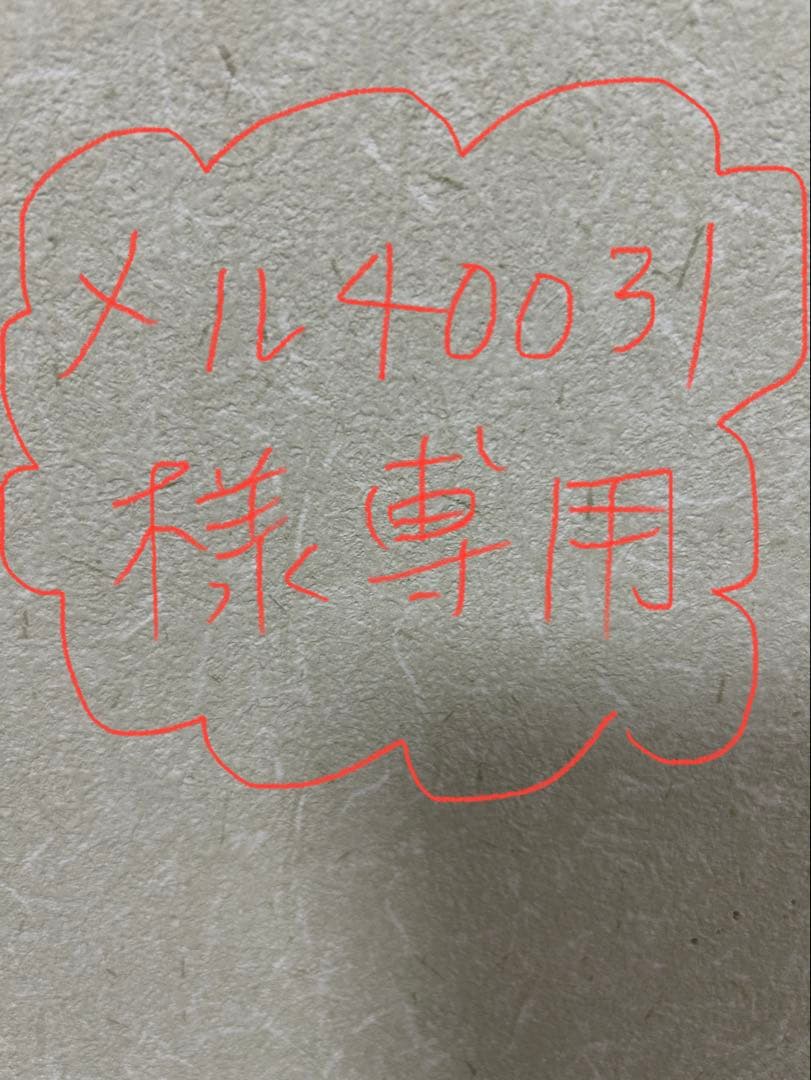 メル40031
様専用